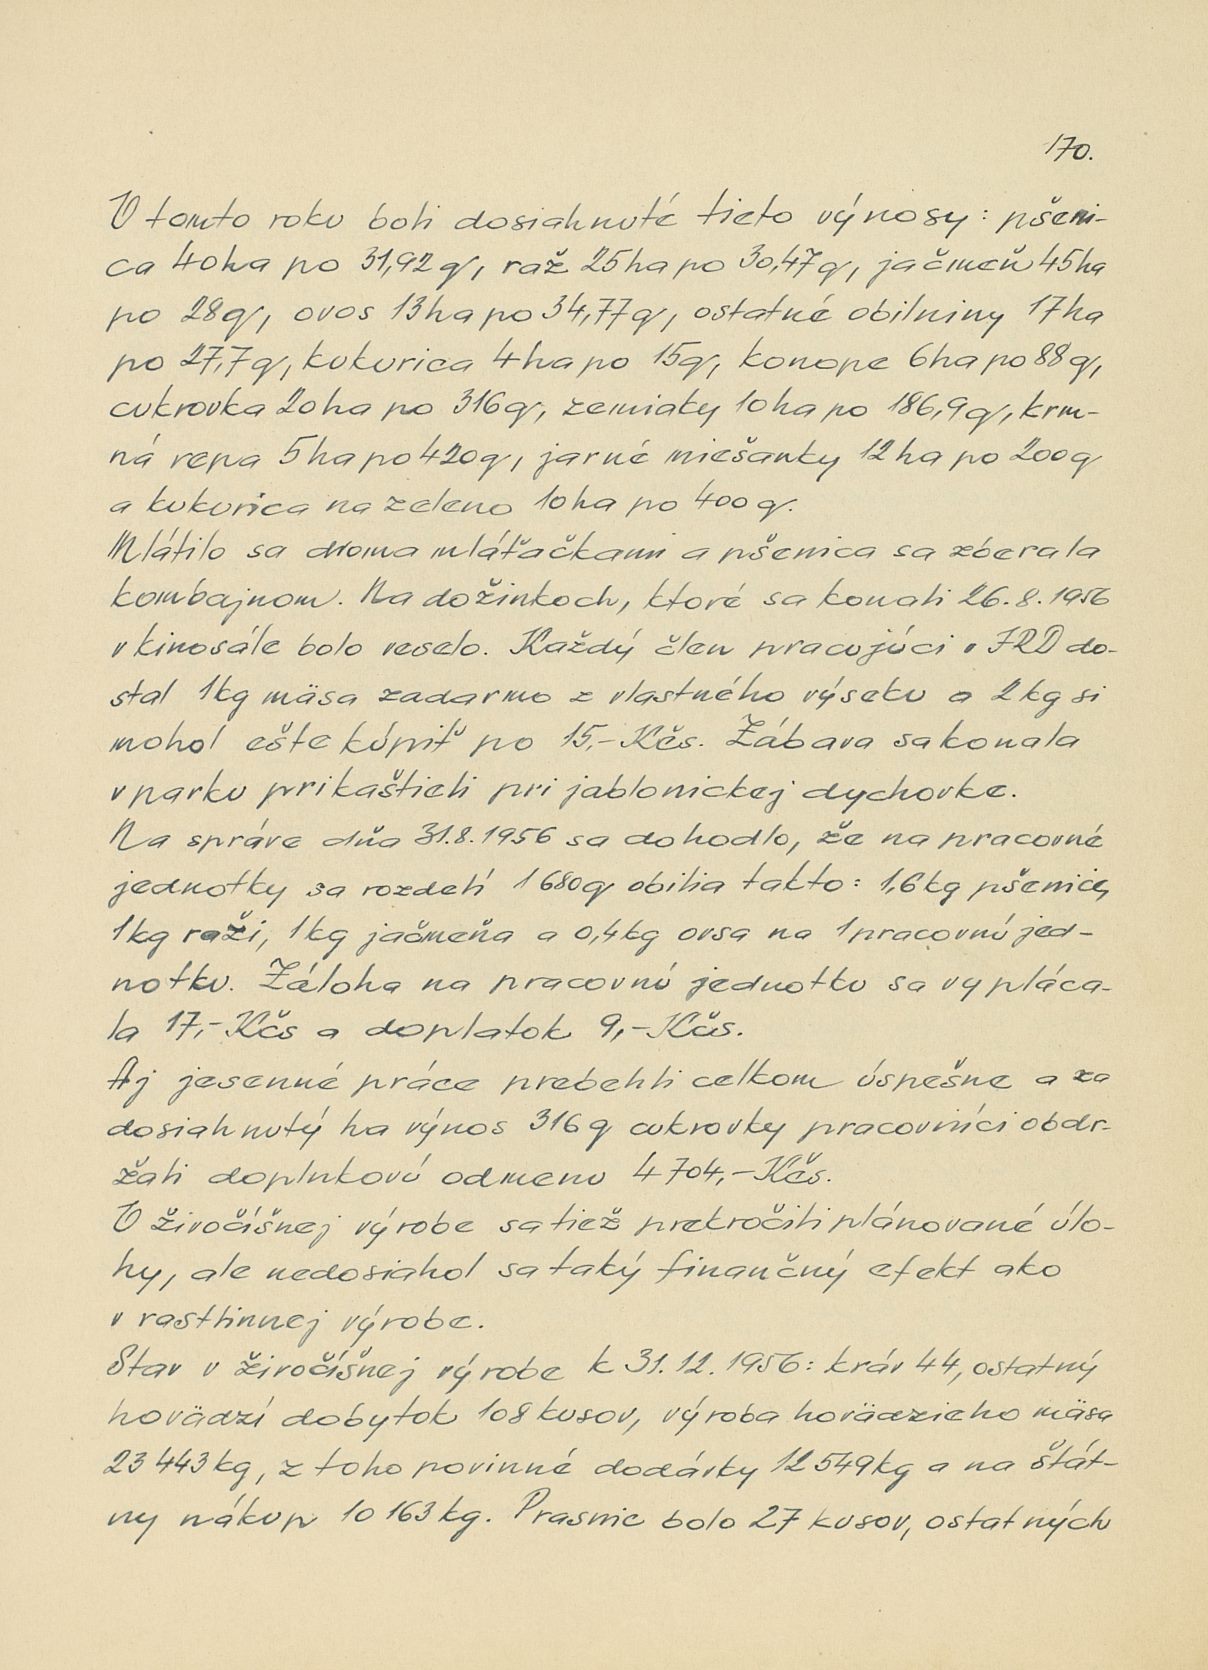 170.
V tomto roku boli dosiahnuté tieto výnosy: pšeni-
ca 40ha po 31,92 q, raž 25ha po 30,47q, jačmeň 45ha
po 28q, ovos 13ha po 34,77q, ostatné obilniny 17ha
po 27,7q, kukurica 4ha po 15q, konope 6ha po 88q,
cukrovka 20ha po 316q, zemiaky 10ha po 186,9q, krm-
ná repa 5ha po 420q, jarné miešanky 12ha po 200q
a kukurica na zeleno 10ha po 400q.
Mlátilo sa dvoma mláťačkami a pšenica sa zberala
kombajnom. Na dožinkoch, ktoré sa konali 26.8.1956
v kinosále bolo veselo. Každý člen pracujúci v JRD do-
stal 1kg mäsa zadarmo z vlastného výseku a 2kg si
mohol ešte kúpiť po 15,- Kčs. Zábava sa konala
v parku pri kaštieli pri jablonickej dychovke.
Na správe dňa 31.8.1956 sa dohodlo, že na pracovné
jednotky sa rozdelí 1680q obilia takto: 1,6kg pšenice,
1kg raži, 1kg jačmeňa a 0,4kg ovsa na 1 pracovnú jed-
notku. Záloha na pracovnú jednotku sa vypláca-
la 17,- Kčs a doplatok 9,- Kčs.
Aj jesenné práce prebehli celkom úspešne a za
dosiahnutý ha výnos 316q cukrovky pracovníci obdr-
žali doplnkovú odmenu 4704,- Kčs.
V živočíšnej výrobe sa tiež prekročili plánované úlo-
hy, ale nedosiahol sa taký finančný efekt ako
v rastlinnej výrobe.
Stav v živočíšnej výrobe k 31.12.1956: kráv 44, ostatný
hovädzí dobytok 108 kusov, výroba hovädzieho mäsa
23 443 kg, z toho povinné dodávky 12 549kg a na štát-
ny nákup 10 163 kg. Prasnic bolo 27 kusov, ostatných